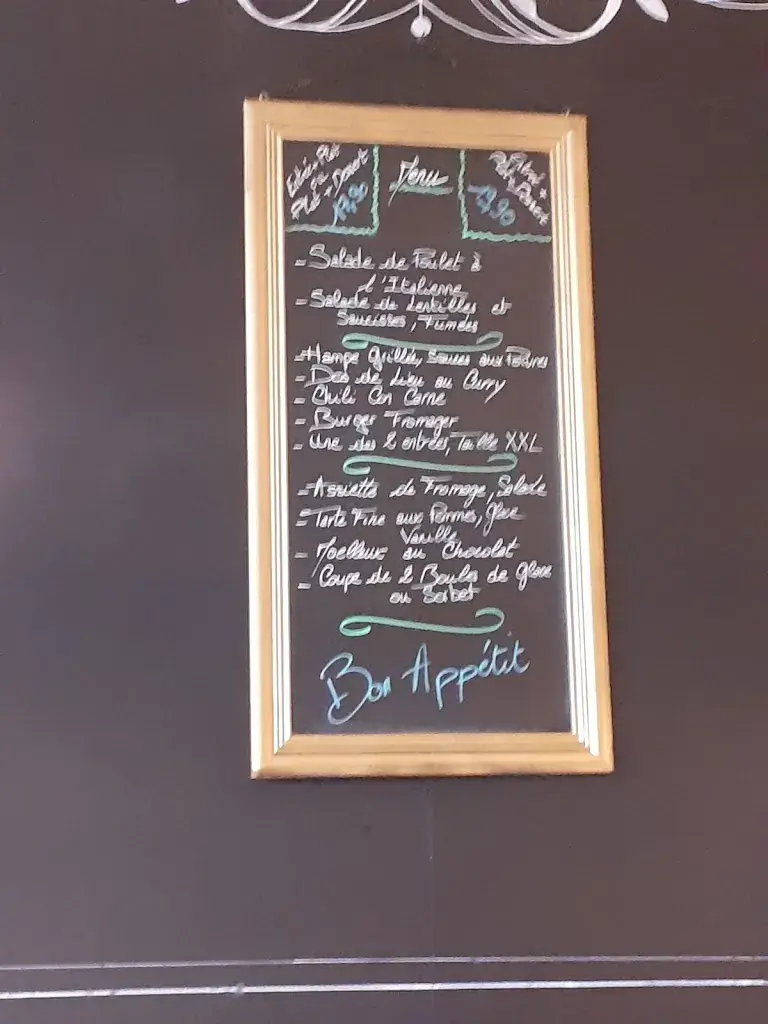 Entrée + Plat
ou
Plat + Dessert
Menu
Plat + Dessert
- Salade de Poulet à
l'Italienne
- Salade de Lentilles et
Saucisses, Fumées
- Hampe Grillée, Sauces aux
- Dés de Lieu au Curry
- Chili Con Carne
- Burger Fromager
- Une des 2 entrées, Taille XXL
- Assiette de Fromage, Salade
- Tarte Fine aux Pommes, glace
Vanille
- Moelleux au Chocolat
- Coupe de 2 Boules de glace
ou Sorbet
Bon Appétit